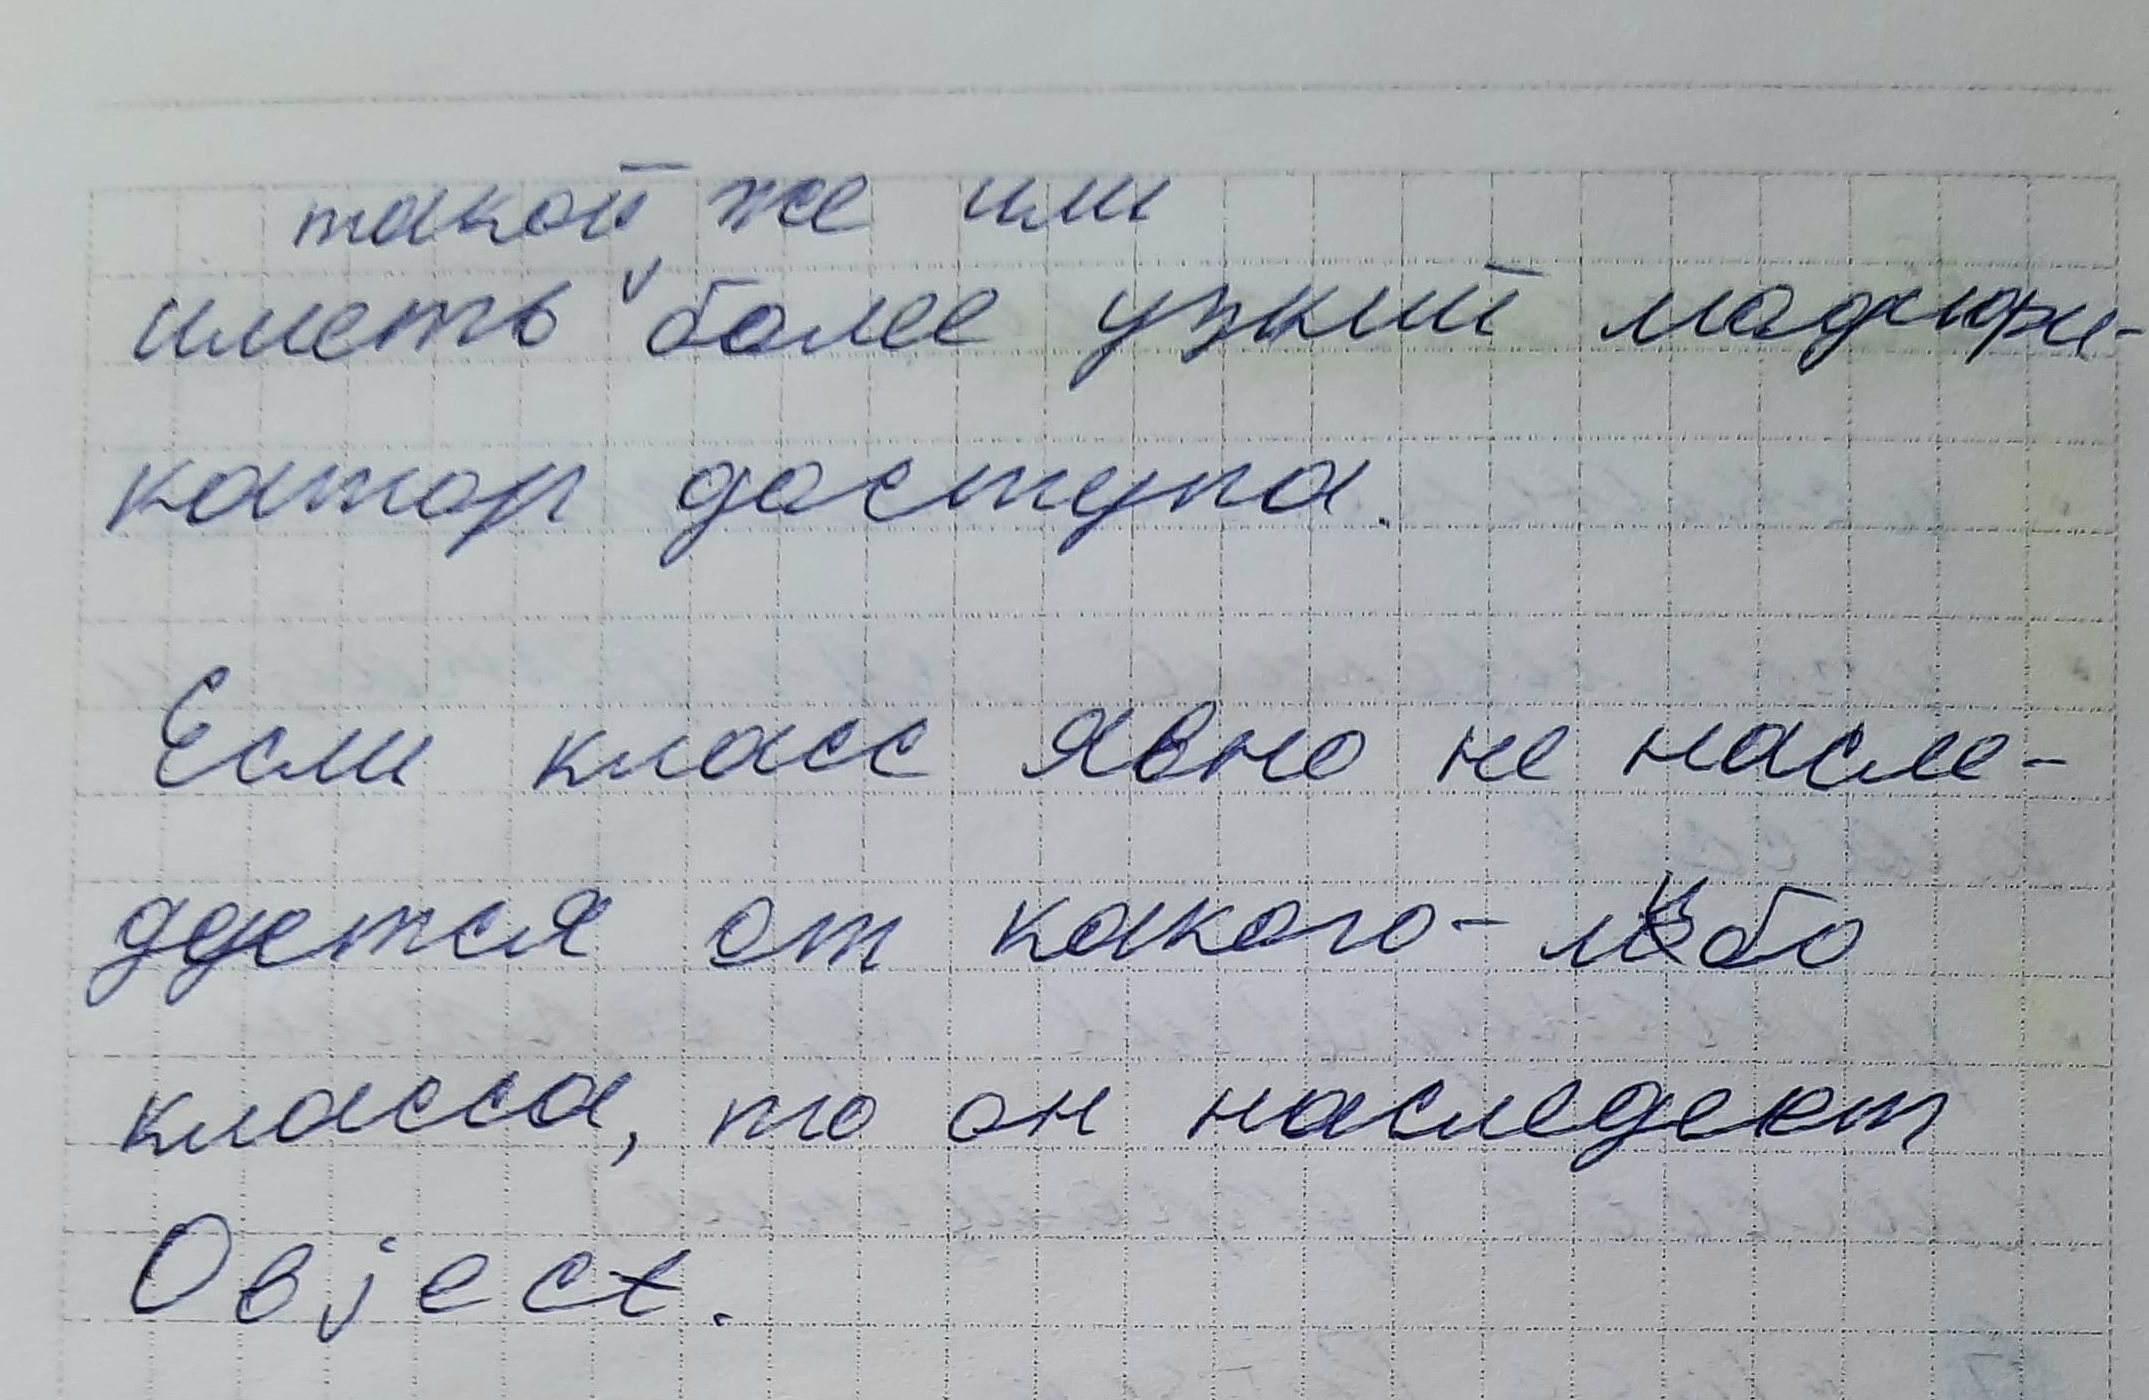 такой же или
иметь ᵛ более узкий модифи-
катор доступа.
Если класс явно не насле-
дуется от какого-либо
класса, то он наследует
Object.